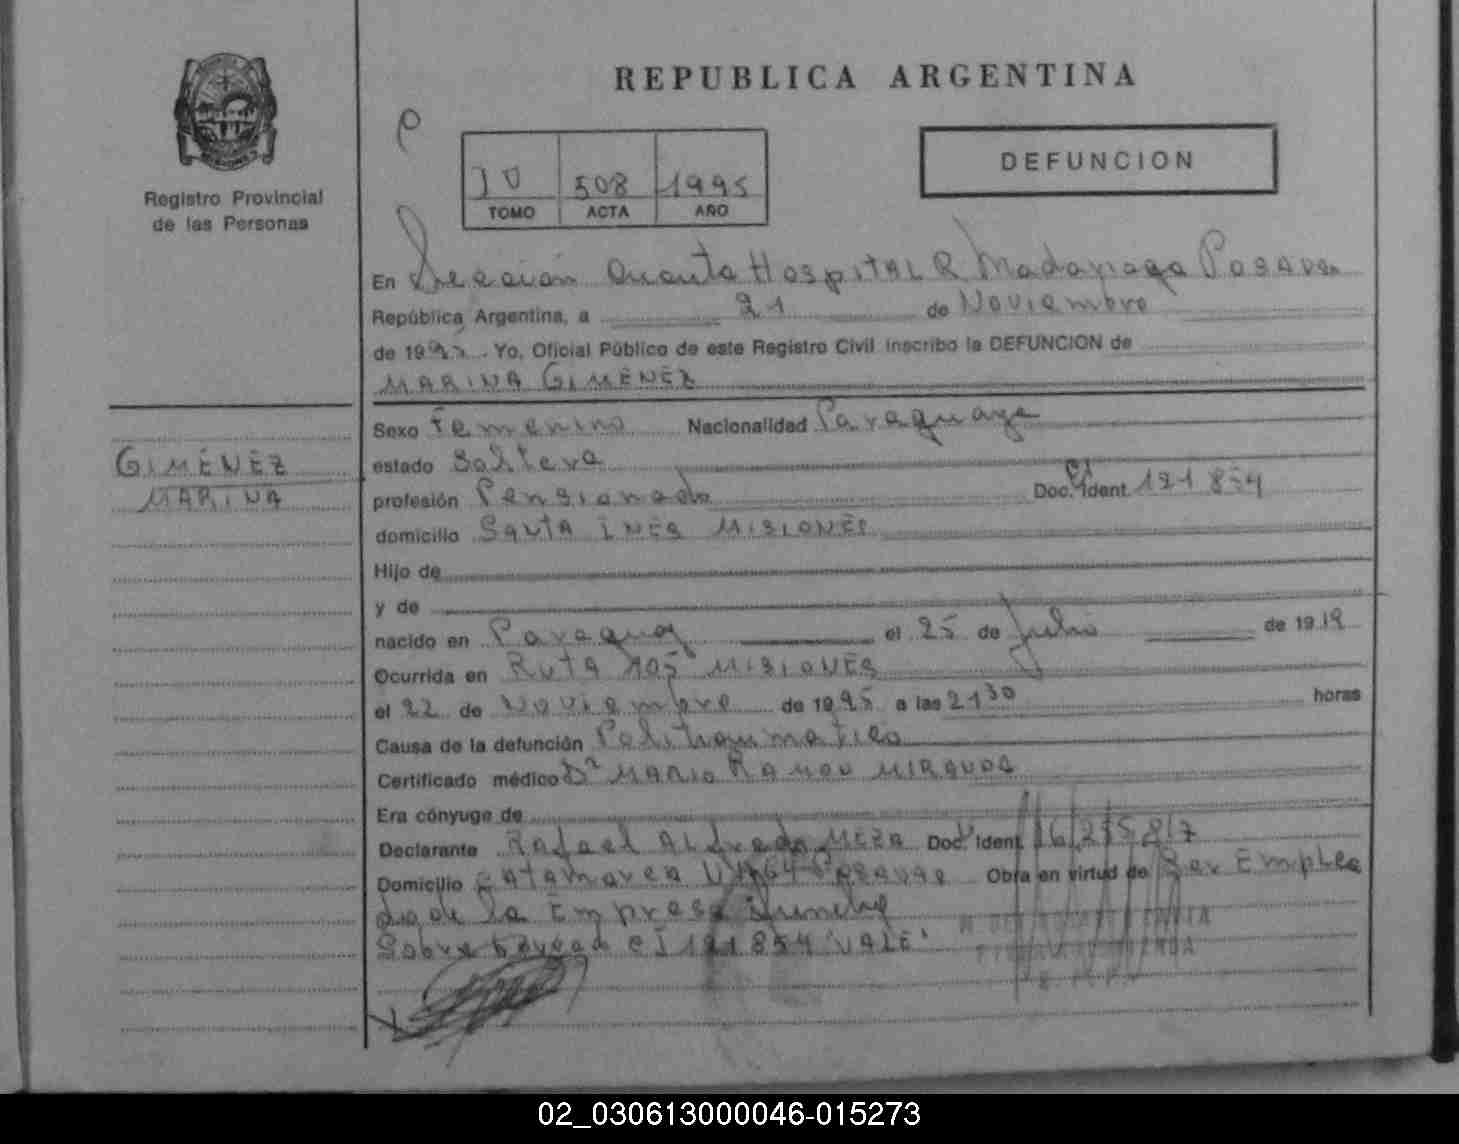 REPUBLICA ARGENTINA
Registro Provincial
de las Personas
508 1995
TOMO ACTA AÑO
DEFUNCION
En Sección Cuarta HOSPITAL R Madariaga
República Argentina, a 21 de Noviembre
de 1995. Yo, Oficial Público de este Registro Civil inscribo la DEFUNCION de
MARINA GIMÉNEZ
GIMÉNEZ
MARINA
Sexo Femenino Nacionalidad Paraguaya
estado Soltera
profesión Pensionada Doc. Ident. 121 854
domicilio SANTA INÉS MISIONES
Hijo de
y de
nacido en Paraguay el 25 de Julio de 1919
Ocurrida en RUTA 105 MISIONES
el 22 de Noviembre de 1995 a las 21 30 horas
Causa de la defunción Politraumatico
Certificado médico Dr MARIO RAMON MIRANDA
Era cónyuge de
Declarante Rafael Alfredo MEZA Doc. Ident. 16.215.817
Domicilio CATAMARCA POSADAS Obra en virtud de Ser Emplea
do de la Empresa
Sobre CI 121.854 "VALE"
02_030613000046-015273